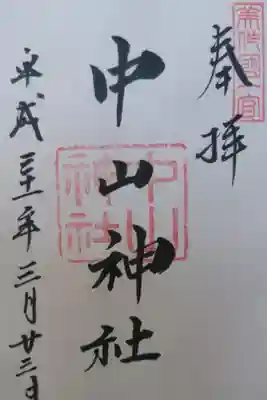 奉拝
美作國一宮
中山神社
中山神社
平成三十一年三月廿三日